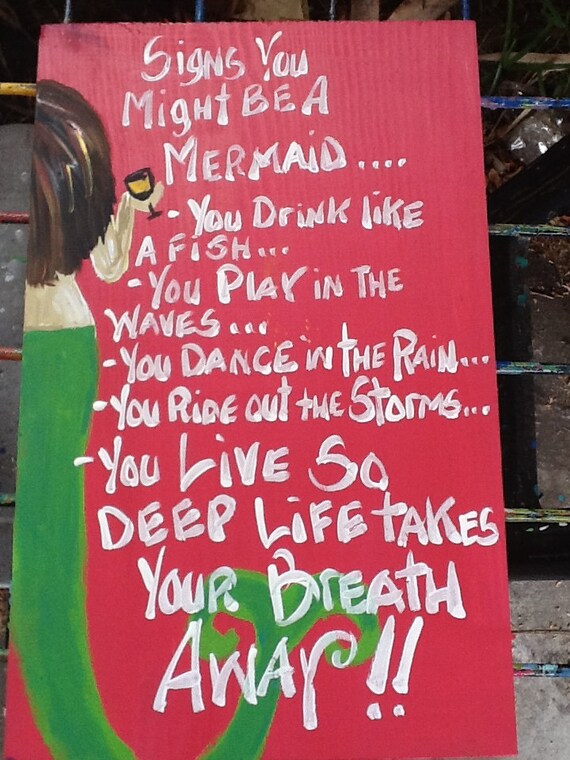 Signs You
Might BE A
MERMAID....
- You Drink like
A FISH...
- You PLAY in THE
WAVES...
- You DANCE in the Rain...
- You Ride out the Storms...
- You Live So
DEEP Life takes
Your Breath
Away!!